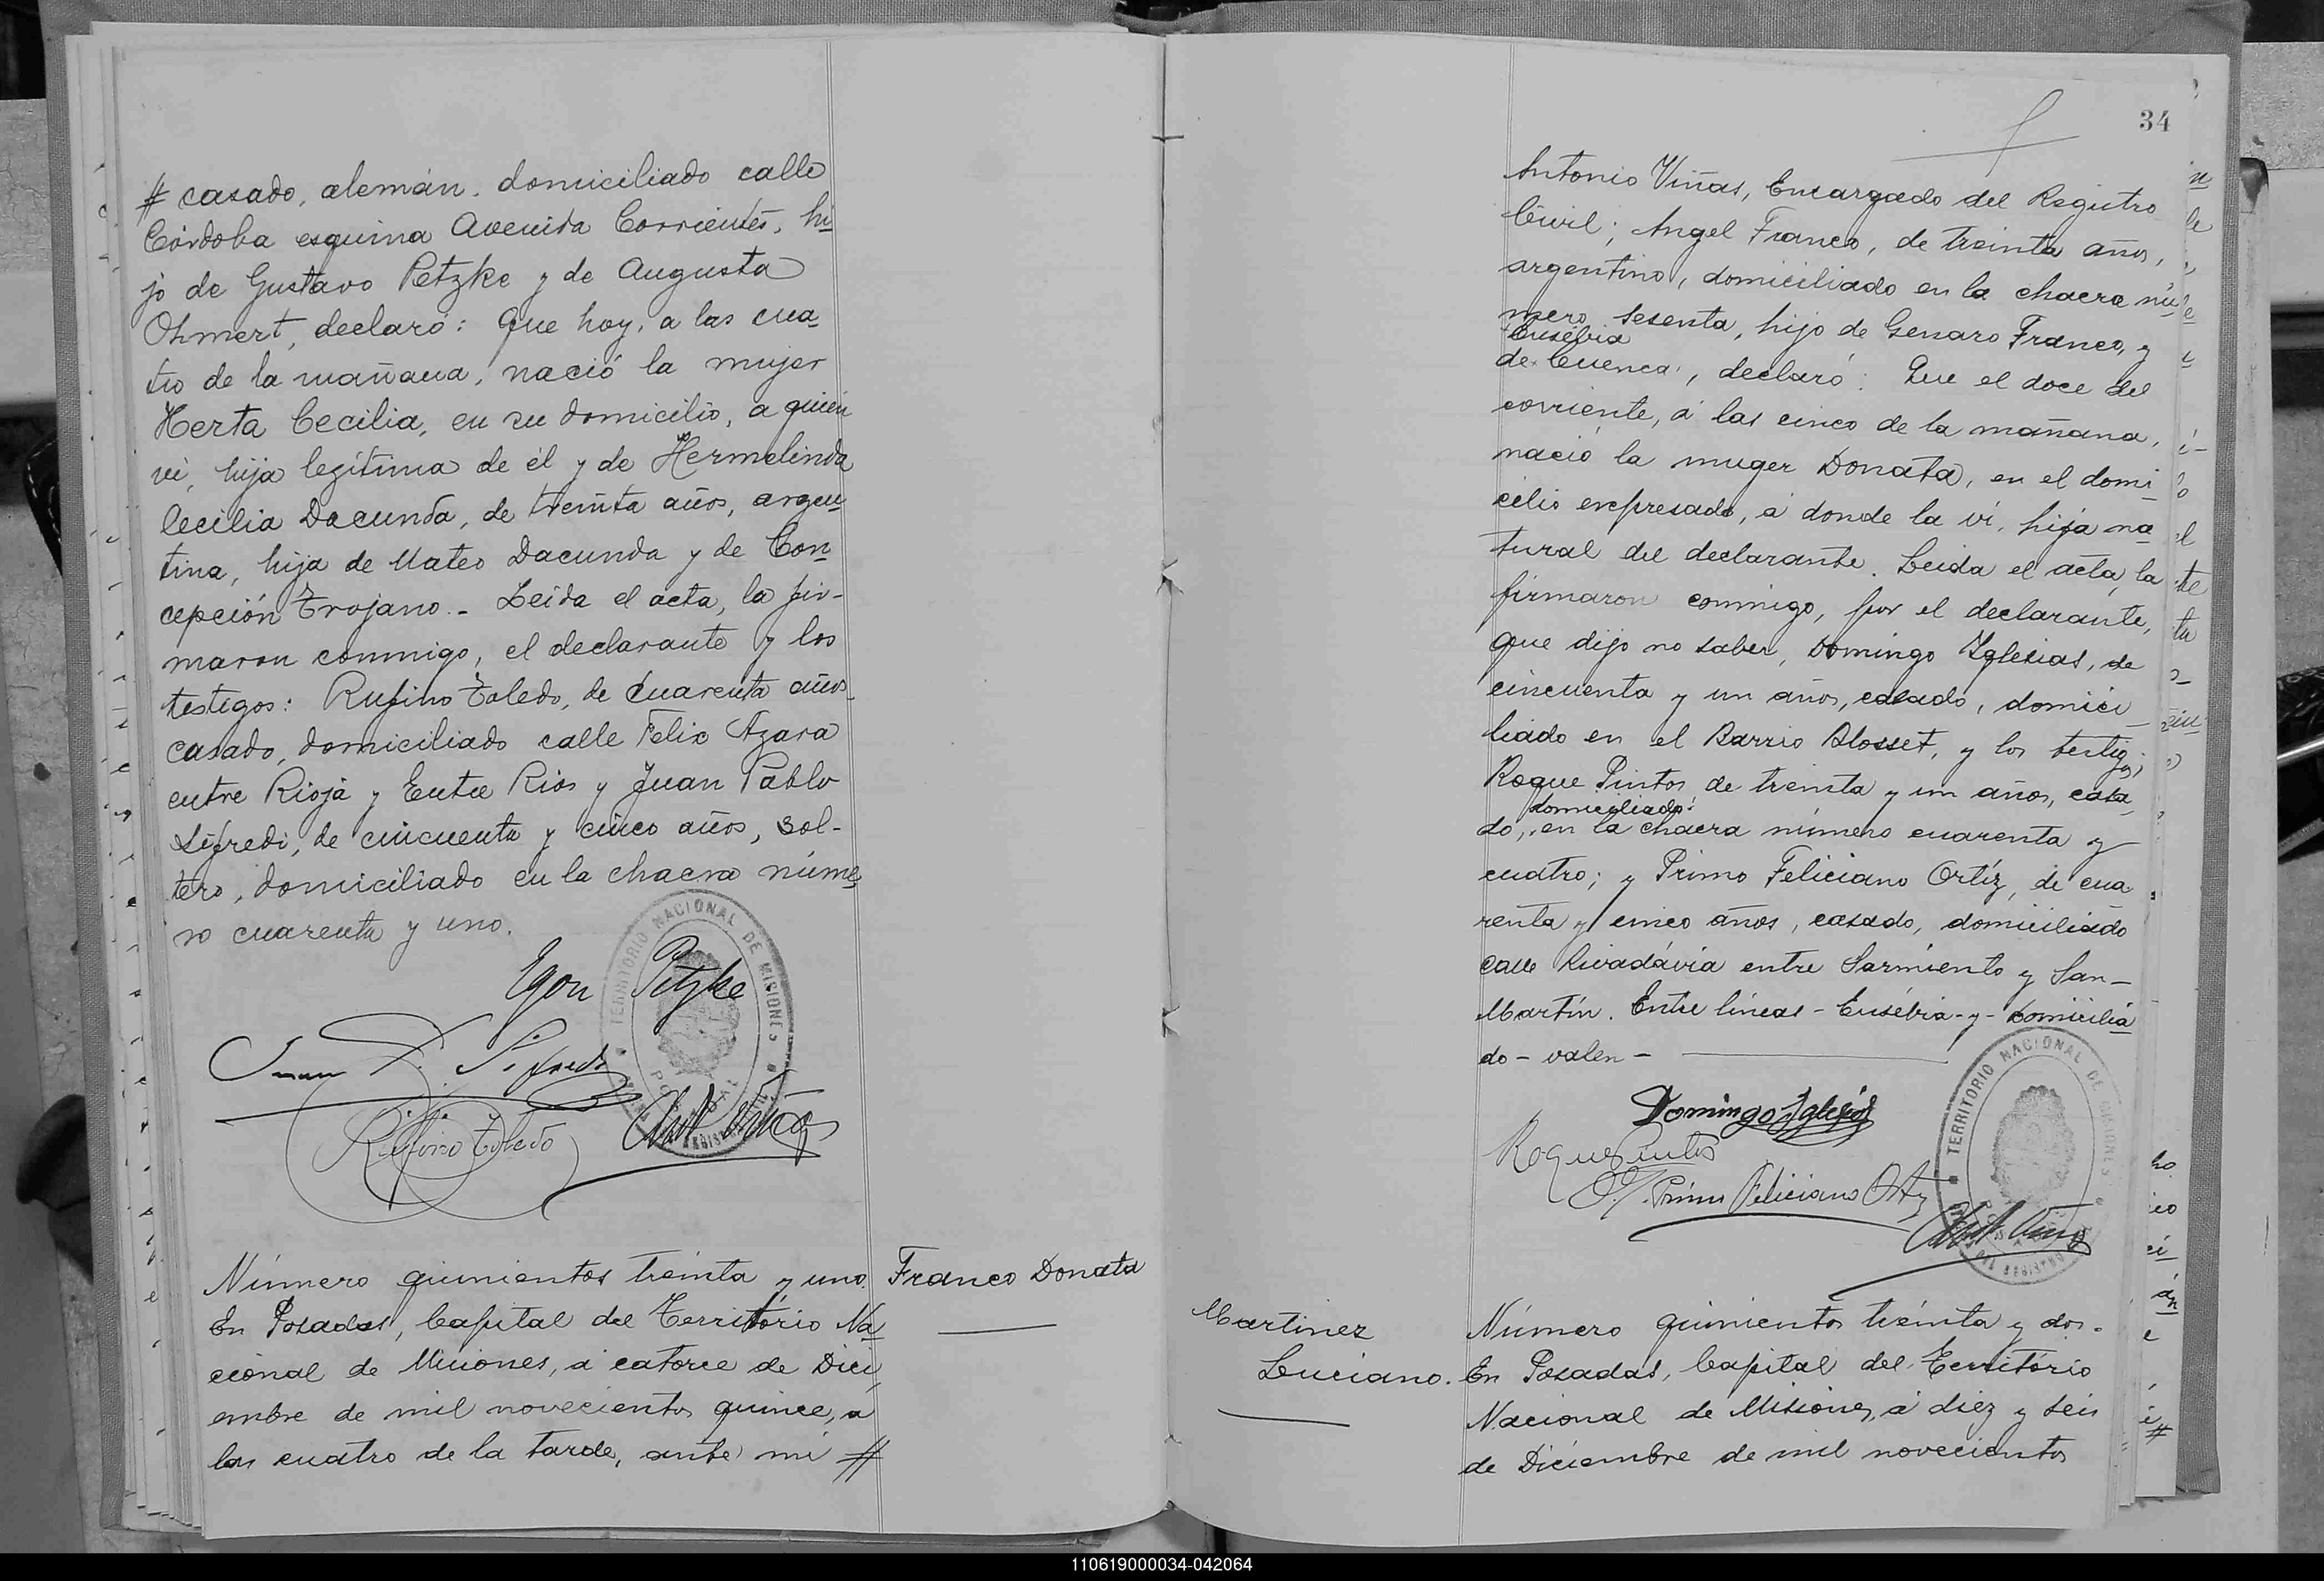 # casado, alemán, domiciliado calle
Córdoba esquina Avenida Corrientes, hi
jo de Gustavo Petzke y de Augusta
Ohmert, declaró: Que hoy, a las cua
tro de la mañana, nació la mujer
Herta Cecilia, en su domicilio, a quien
ví, hija legítima de él y de Hermelinda
Cecilia Dacunda, de treinta años, argen
tina, hija de Mateo Dacunda y de Con
cepción Trojano.- Leida el acta, la fir-
maron conmigo, el declarante y los
testigos: Rufino Toledo, de cuarenta años
casado, domiciliado calle Felix Azara
entre Rioja y Entre Rios y Juan Pablo
Sifredi, de cincuenta y cinco años, sol-
tero, domiciliado en la chacra núme
ro cuarenta y uno.
Egon Petzke
Juan P. Sifredi
Rufino Toledo
TERRITORIO NACIONAL DE MISIONES
Número quinientos treinta y uno.
En Posadas, Capital del Territorio Na
cional de Misiones, á catorce de Dici
embre de mil novecientos quince, a
las cuatro de la tarde, ante mí #
Franco Donata
34
Antonio Viñas, Encargado del Registro
Civil; Angel Franco, de treinta años,
argentino, domiciliado en la chacra nú
mero sesenta, hijo de Genaro Franco, y
Eusébia
de Cuenca, declaró: Que el doce del
corriente, á las cinco de la mañana,
nació la muger Donata, en el domi
cilio expresado, á donde la ví, hija na
tural del declarante. Leida el acta, la
firmaron conmigo, por el declarante,
que dijo no saber, Domingo Iglesias, de
cincuenta y un años, casado, domici
liado en el Barrio Blosset, y los testigos;
Roque Pintos, de treinta y un años, casa
domiciliado
do, en la chacra número cuarenta y
cuatro; y Primo Feliciano Ortíz, de cua
renta y cinco años, casado, domiciliado
calle Rivadávia entre Sarmiento y San-
Martín. Entre líneas - Eusébia - y - domicilia
do - valen -
Domingo Iglesias
Roque Pintos
Primo Feliciano Ortiz
TERRITORIO NACIONAL DE MISIONES
Martinez
Luciano.
Número quinientos treinta y dos.
En Posadas, Capital del Territorio
Nacional de Misiones, á diez y seis
de Diciembre de mil novecientos
110619000034-042064